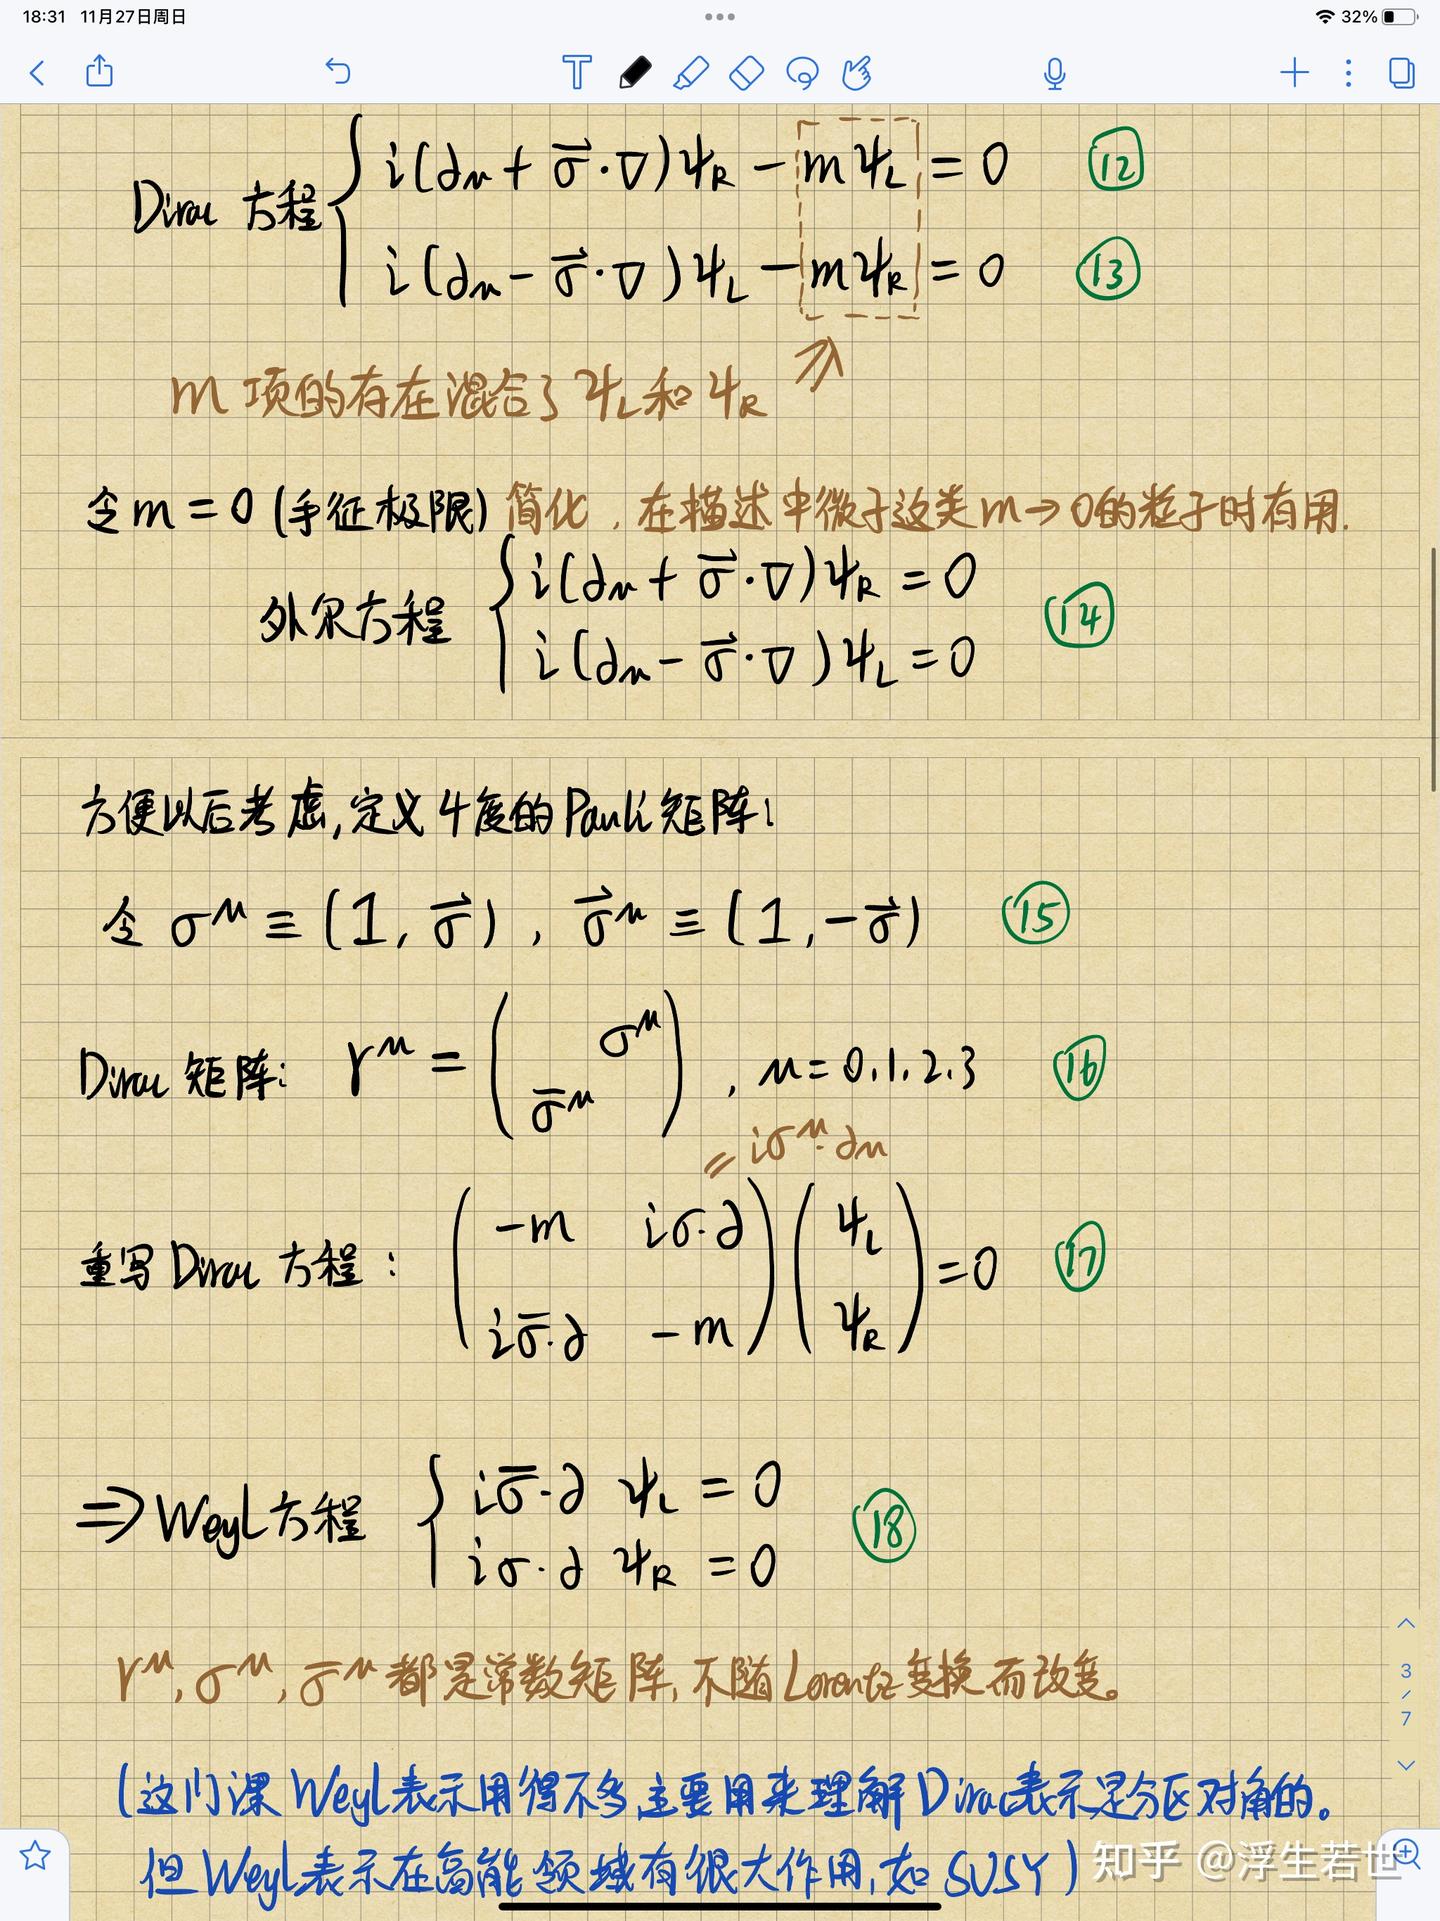 18:31 11月27日周日
32%
Dirac 方程 { i(∂μ + σ⃗·∇)ψR − mψL = 0 ⑫
i(∂μ − σ⃗·∇)ψL − mψR = 0 ⑬
m 项的存在混合了 ψL和 ψR
令 m = 0 (手征极限) 简化，在描述中微子这类 m→0的粒子时有用.
外尔方程 { i(∂μ + σ⃗·∇)ψR = 0
i(∂μ − σ⃗·∇)ψL = 0 ⑭
方便以后考虑, 定义 4度的 Pauli 矩阵:
令 σ^μ ≡ (1, σ⃗), σ⃗^μ ≡ (1, −σ⃗) ⑮
Dirac 矩阵: γ^μ = ( σ^μ
σ̄^μ ) , μ = 0.1.2.3 ⑯
= iσ^μ·∂μ
重写 Dirac 方程: ( −m iσ·∂
iσ̄·∂ −m ) ( ψL
ψR ) = 0 ⑰
⇒ Weyl 方程 { iσ̄·∂ ψL = 0
iσ·∂ ψR = 0 ⑱
γ^μ, σ^μ, σ̄^μ 都是常数矩阵, 不随 Lorentz 变换而改变。
(这门课 Weyl表示用得不多,主要用来理解 Dirac表示是分区对角的。
但 Weyl表示在高能领域有很大作用, 如 SUSY)
3
/
7
知乎 @浮生若世